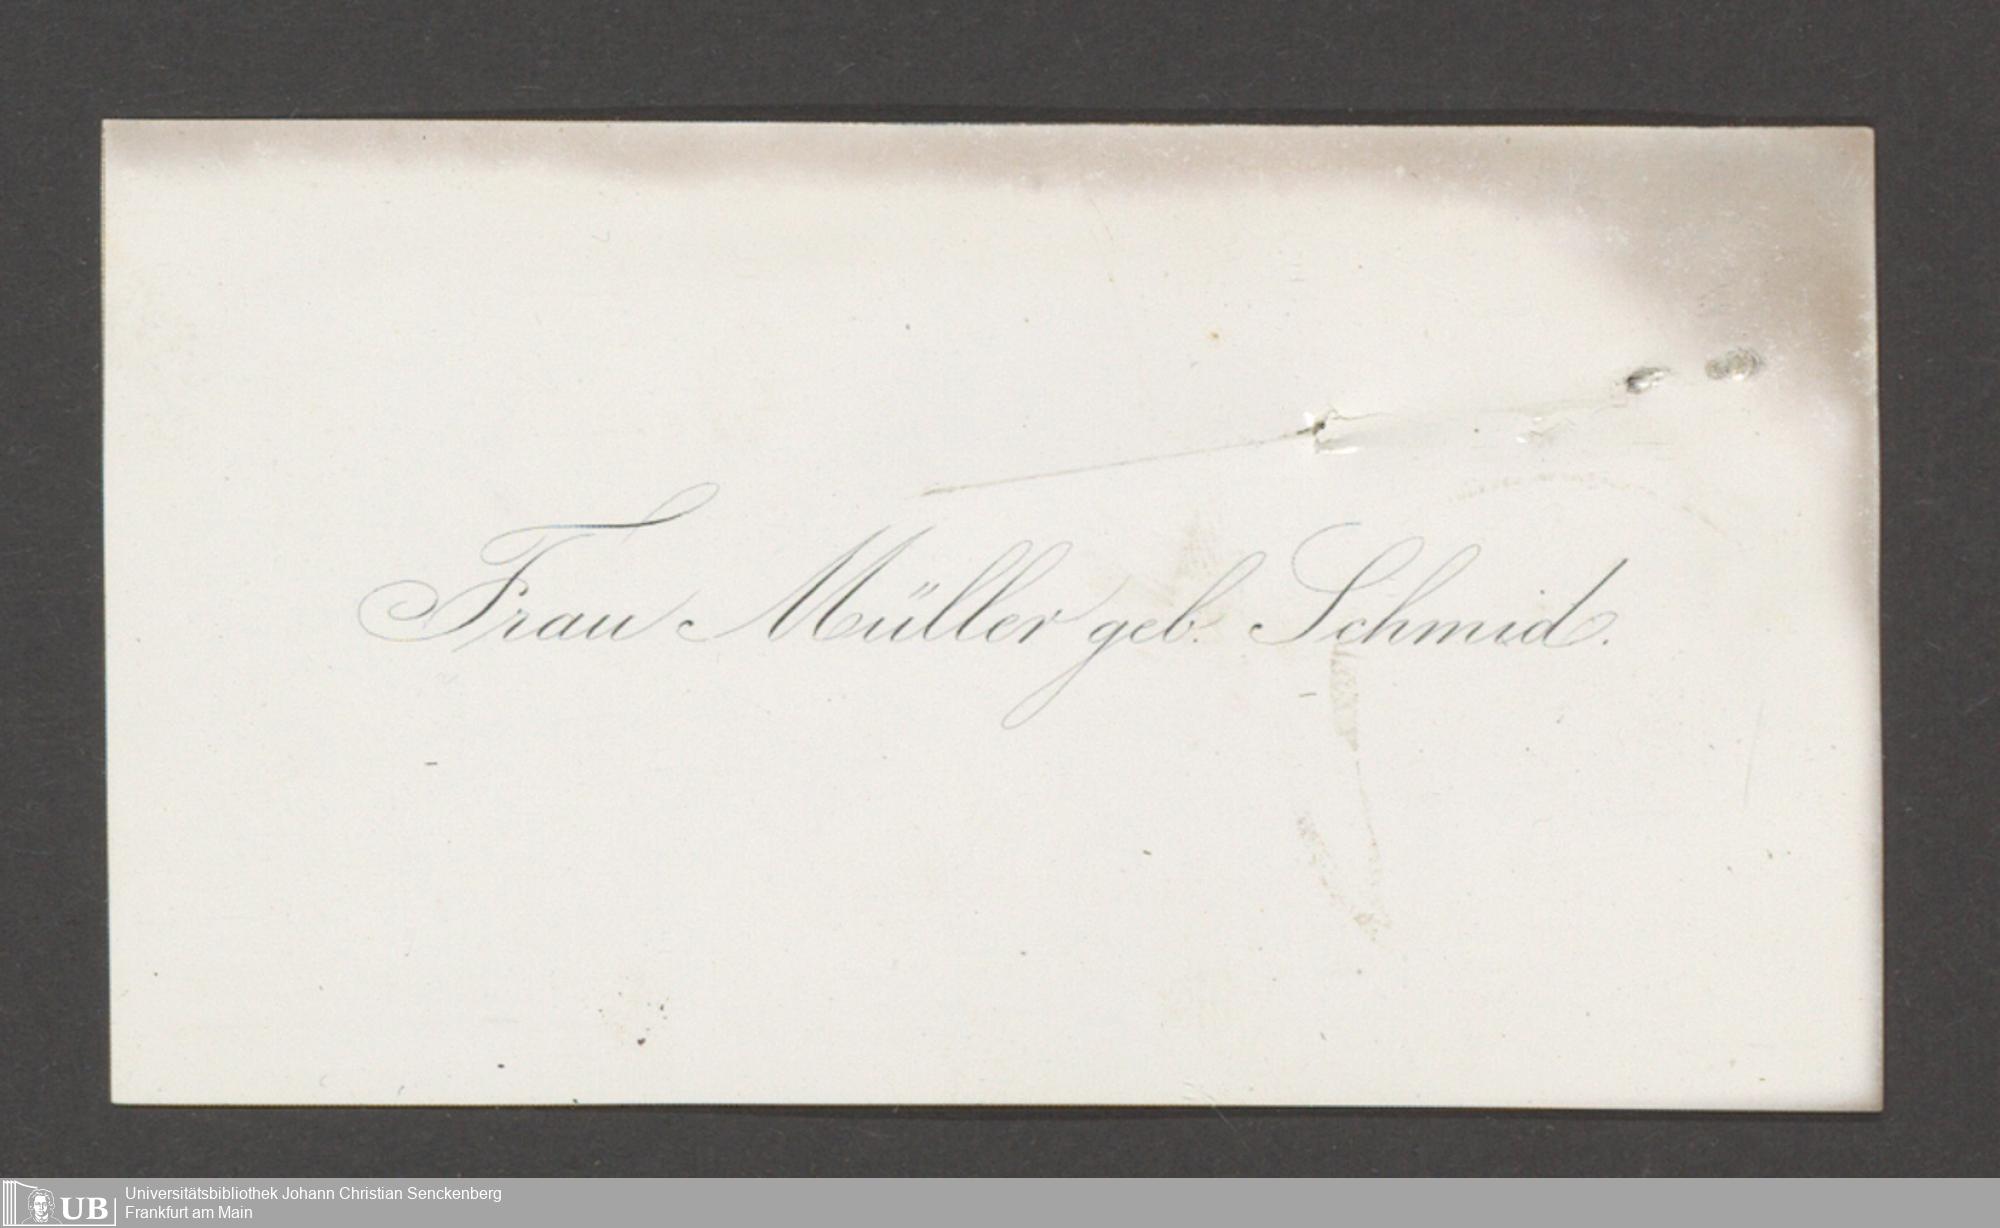 Frau Müller geb. Schmid.
UB
Universitätsbibliothek Johann Christian Senckenberg
Frankfurt am Main